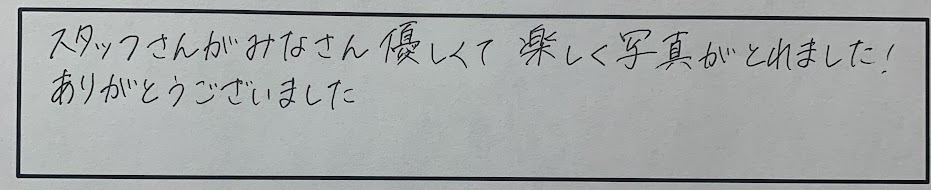 スタッフさんがみなさん優しくて 楽しく写真がとれました!
ありがとうございました